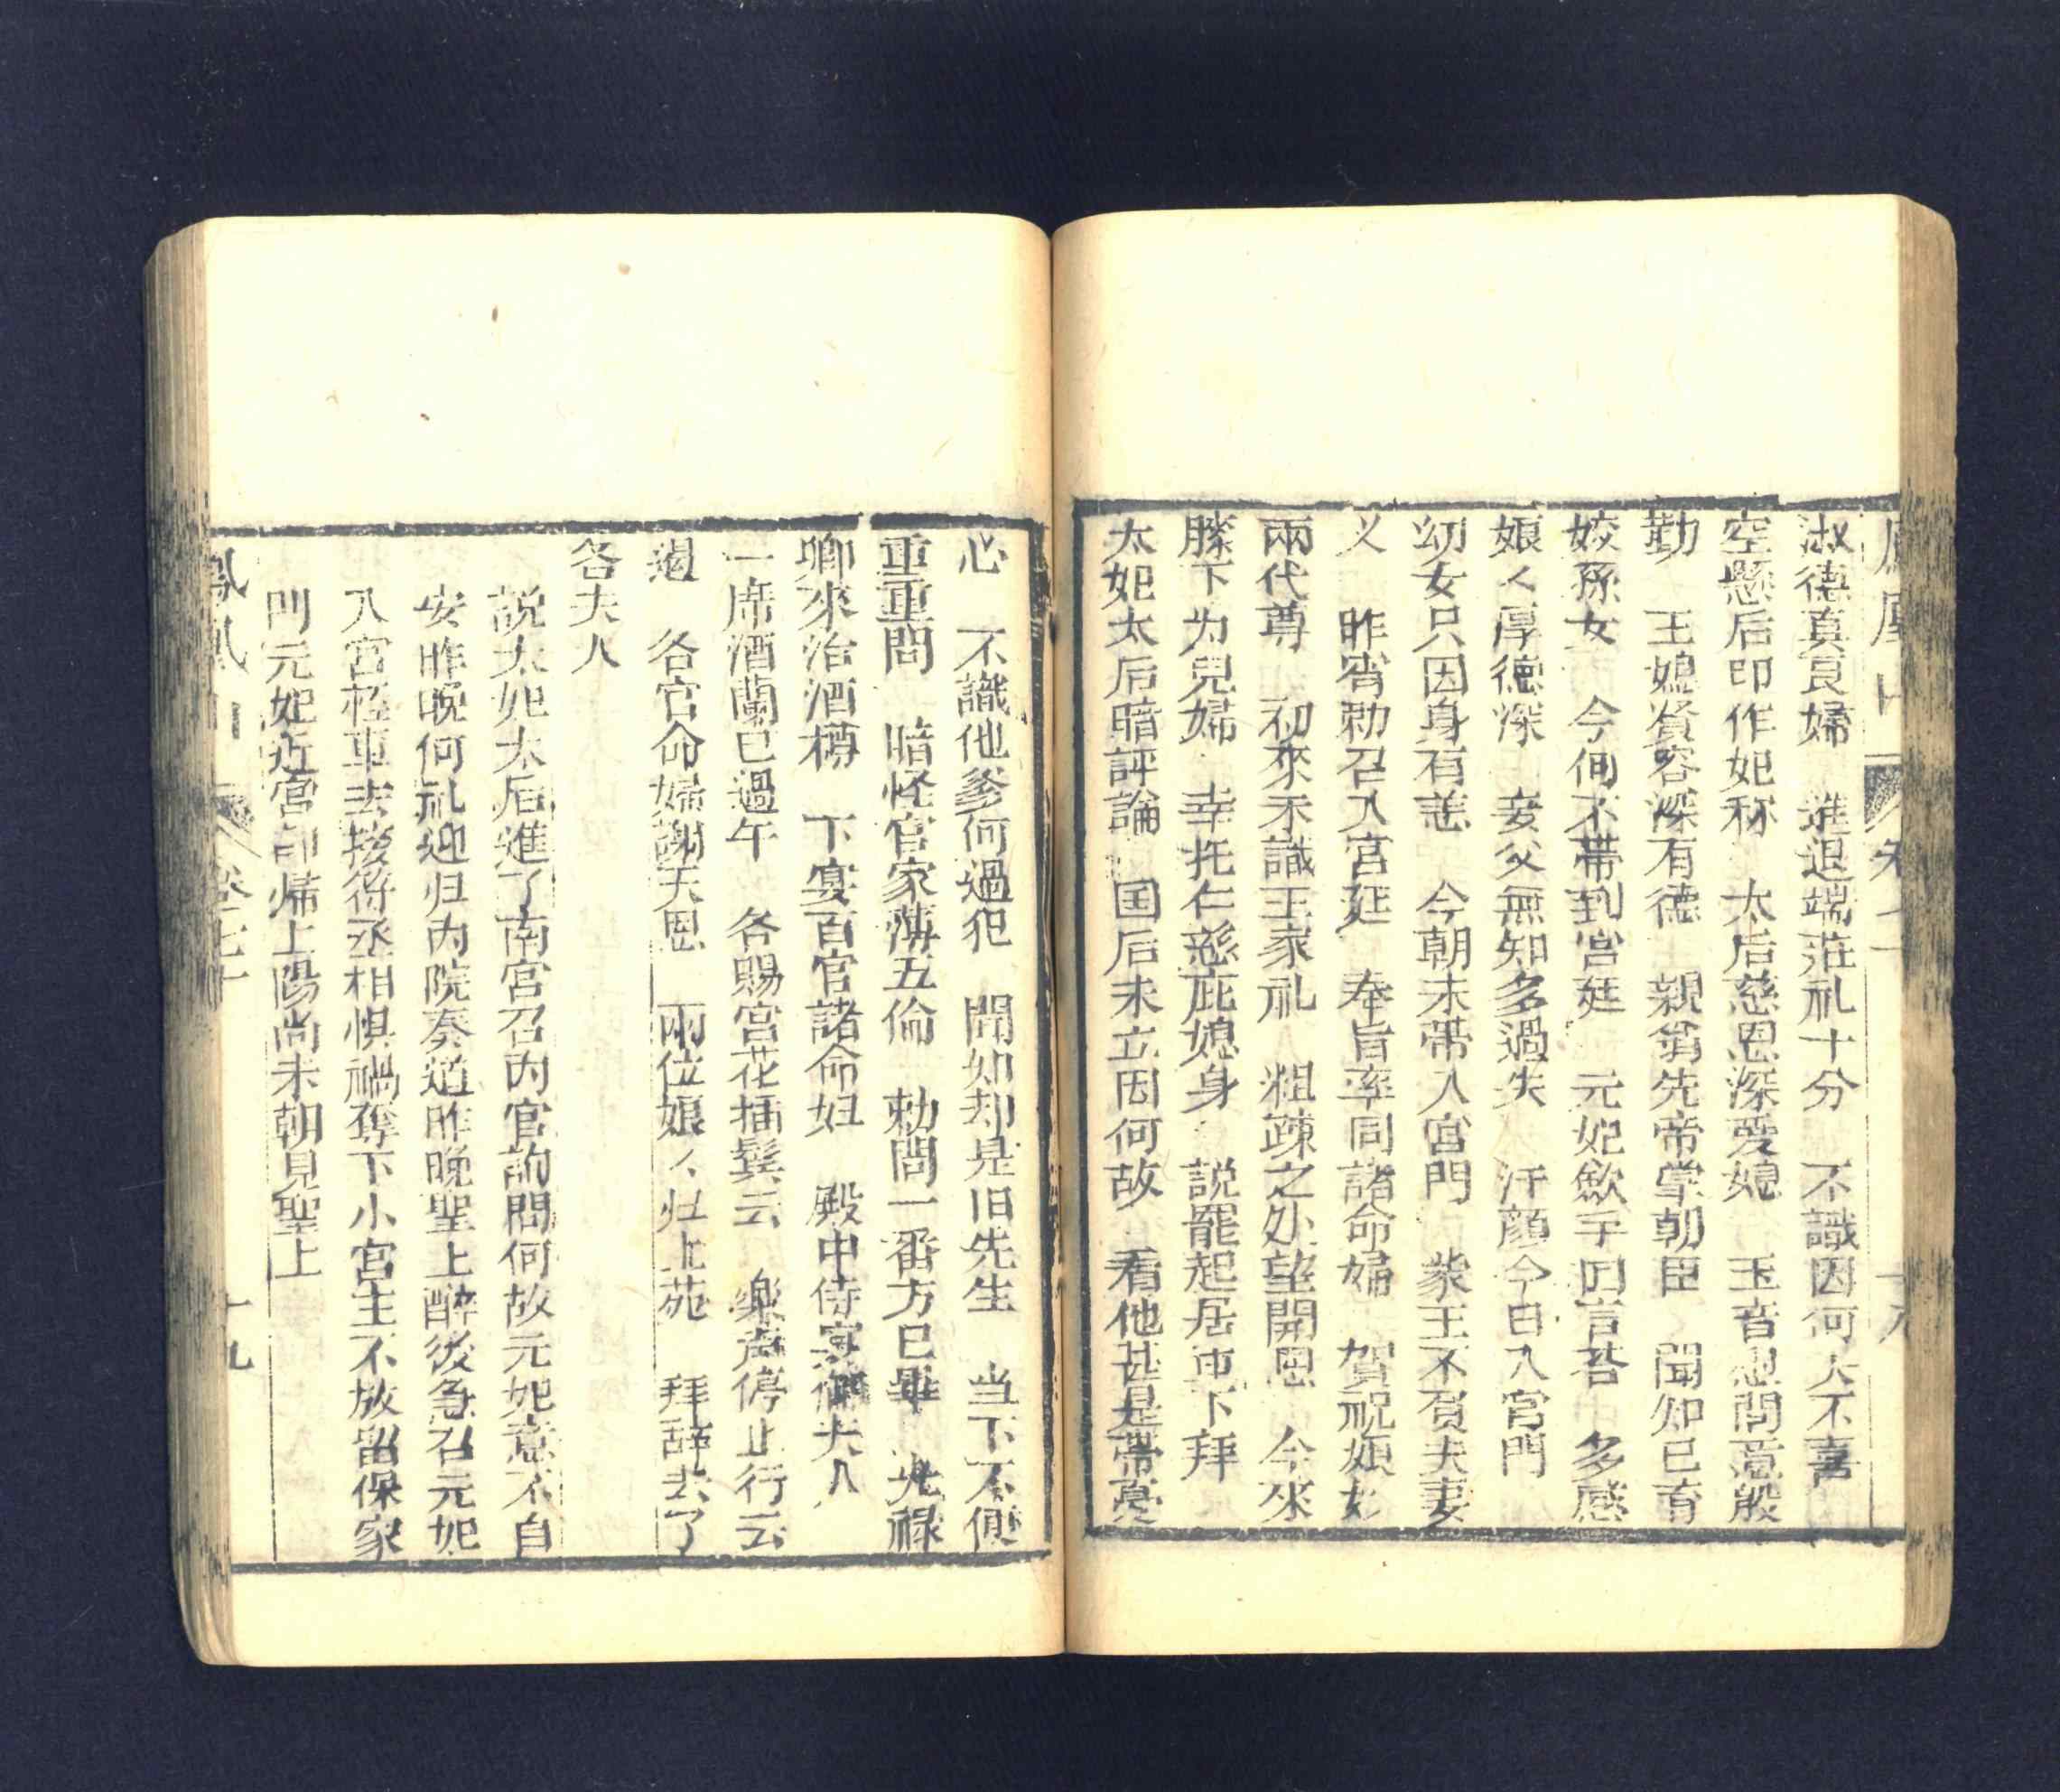 淑德真良婦　進退端莊礼十分　不識因何大不喜
空懸后印作妃称　太后慈恩深愛媳　玉音思問意殷
勤　王媳賢容深有德　親翁先帝掌朝臣　聞知已育
姣孫女　今何不帶到宮廷　元妃歛手回言荅　多感
娘〻厚德深　妾父無知多過失　汗顔今日入宮門
幼女只因身有恙　今朝未帶入宮門　蒙王不責夫妻
义　昨宵勅召入宮廷　奉旨率同諸命婦　賀祝娘〻
兩代尊　初來未識王家礼　粗疎之処望開恩　今來
膝下为兒婦　幸托仁慈庇媳身　説罷起居再下拜
太妃太后暗評論　国后未立因何故　看他甚是帶憂
心　不識他爹何過犯　聞如却是旧先生　当下不便
重重問　暗怪官家薄五倫　勅問一番方已畢　光禄
卿來治酒樽　下宴百官諸命妇　殿中侍宴夫人
一席酒闌已過午　各賜宮花插鬂云　樂声停止行云
遏　各官命婦謝天恩　兩位娘〻归上苑　拜辞去了
各夫人
説太妃太后進了南宮召内官訽問何故元妃意不自
安昨晚何礼迎归内院奏道昨晚聖上醉後急召元妃
入宮輕車去接符丞相惧禍奪下小宮主不放留保家
門元妃近宮即帰上陽尚未朝見聖上
鳳凰山　卷七十　十九